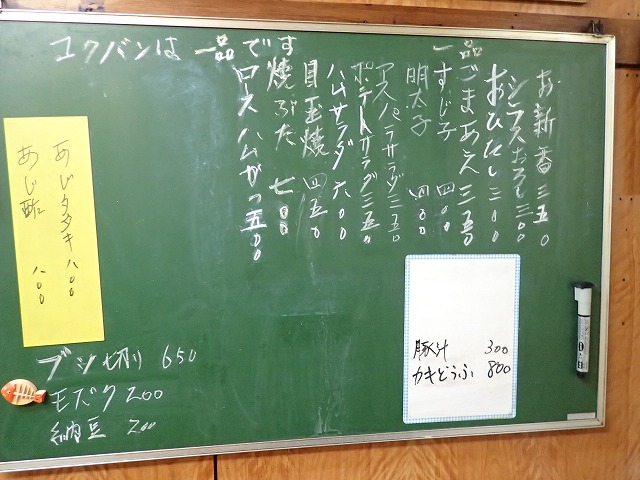 コクバンは 一品です
一品
お新香 三五〇
シラスおろし 三〇〇
おひたし 三〇〇
ごまあえ 三五〇
すじ子 四〇〇
明太子 四〇〇
アスパラサラダ 三五〇
ポテトサラダ 三五〇
ハムサラダ 六〇〇
目玉焼 四五〇
焼ぶた 七〇〇
ロースハムがつ 五〇〇
あじタタキ 八〇〇
あじ酢 八〇〇
ブツ切り 650
モズク 200
納豆 200
豚汁 300
カキどうふ 800